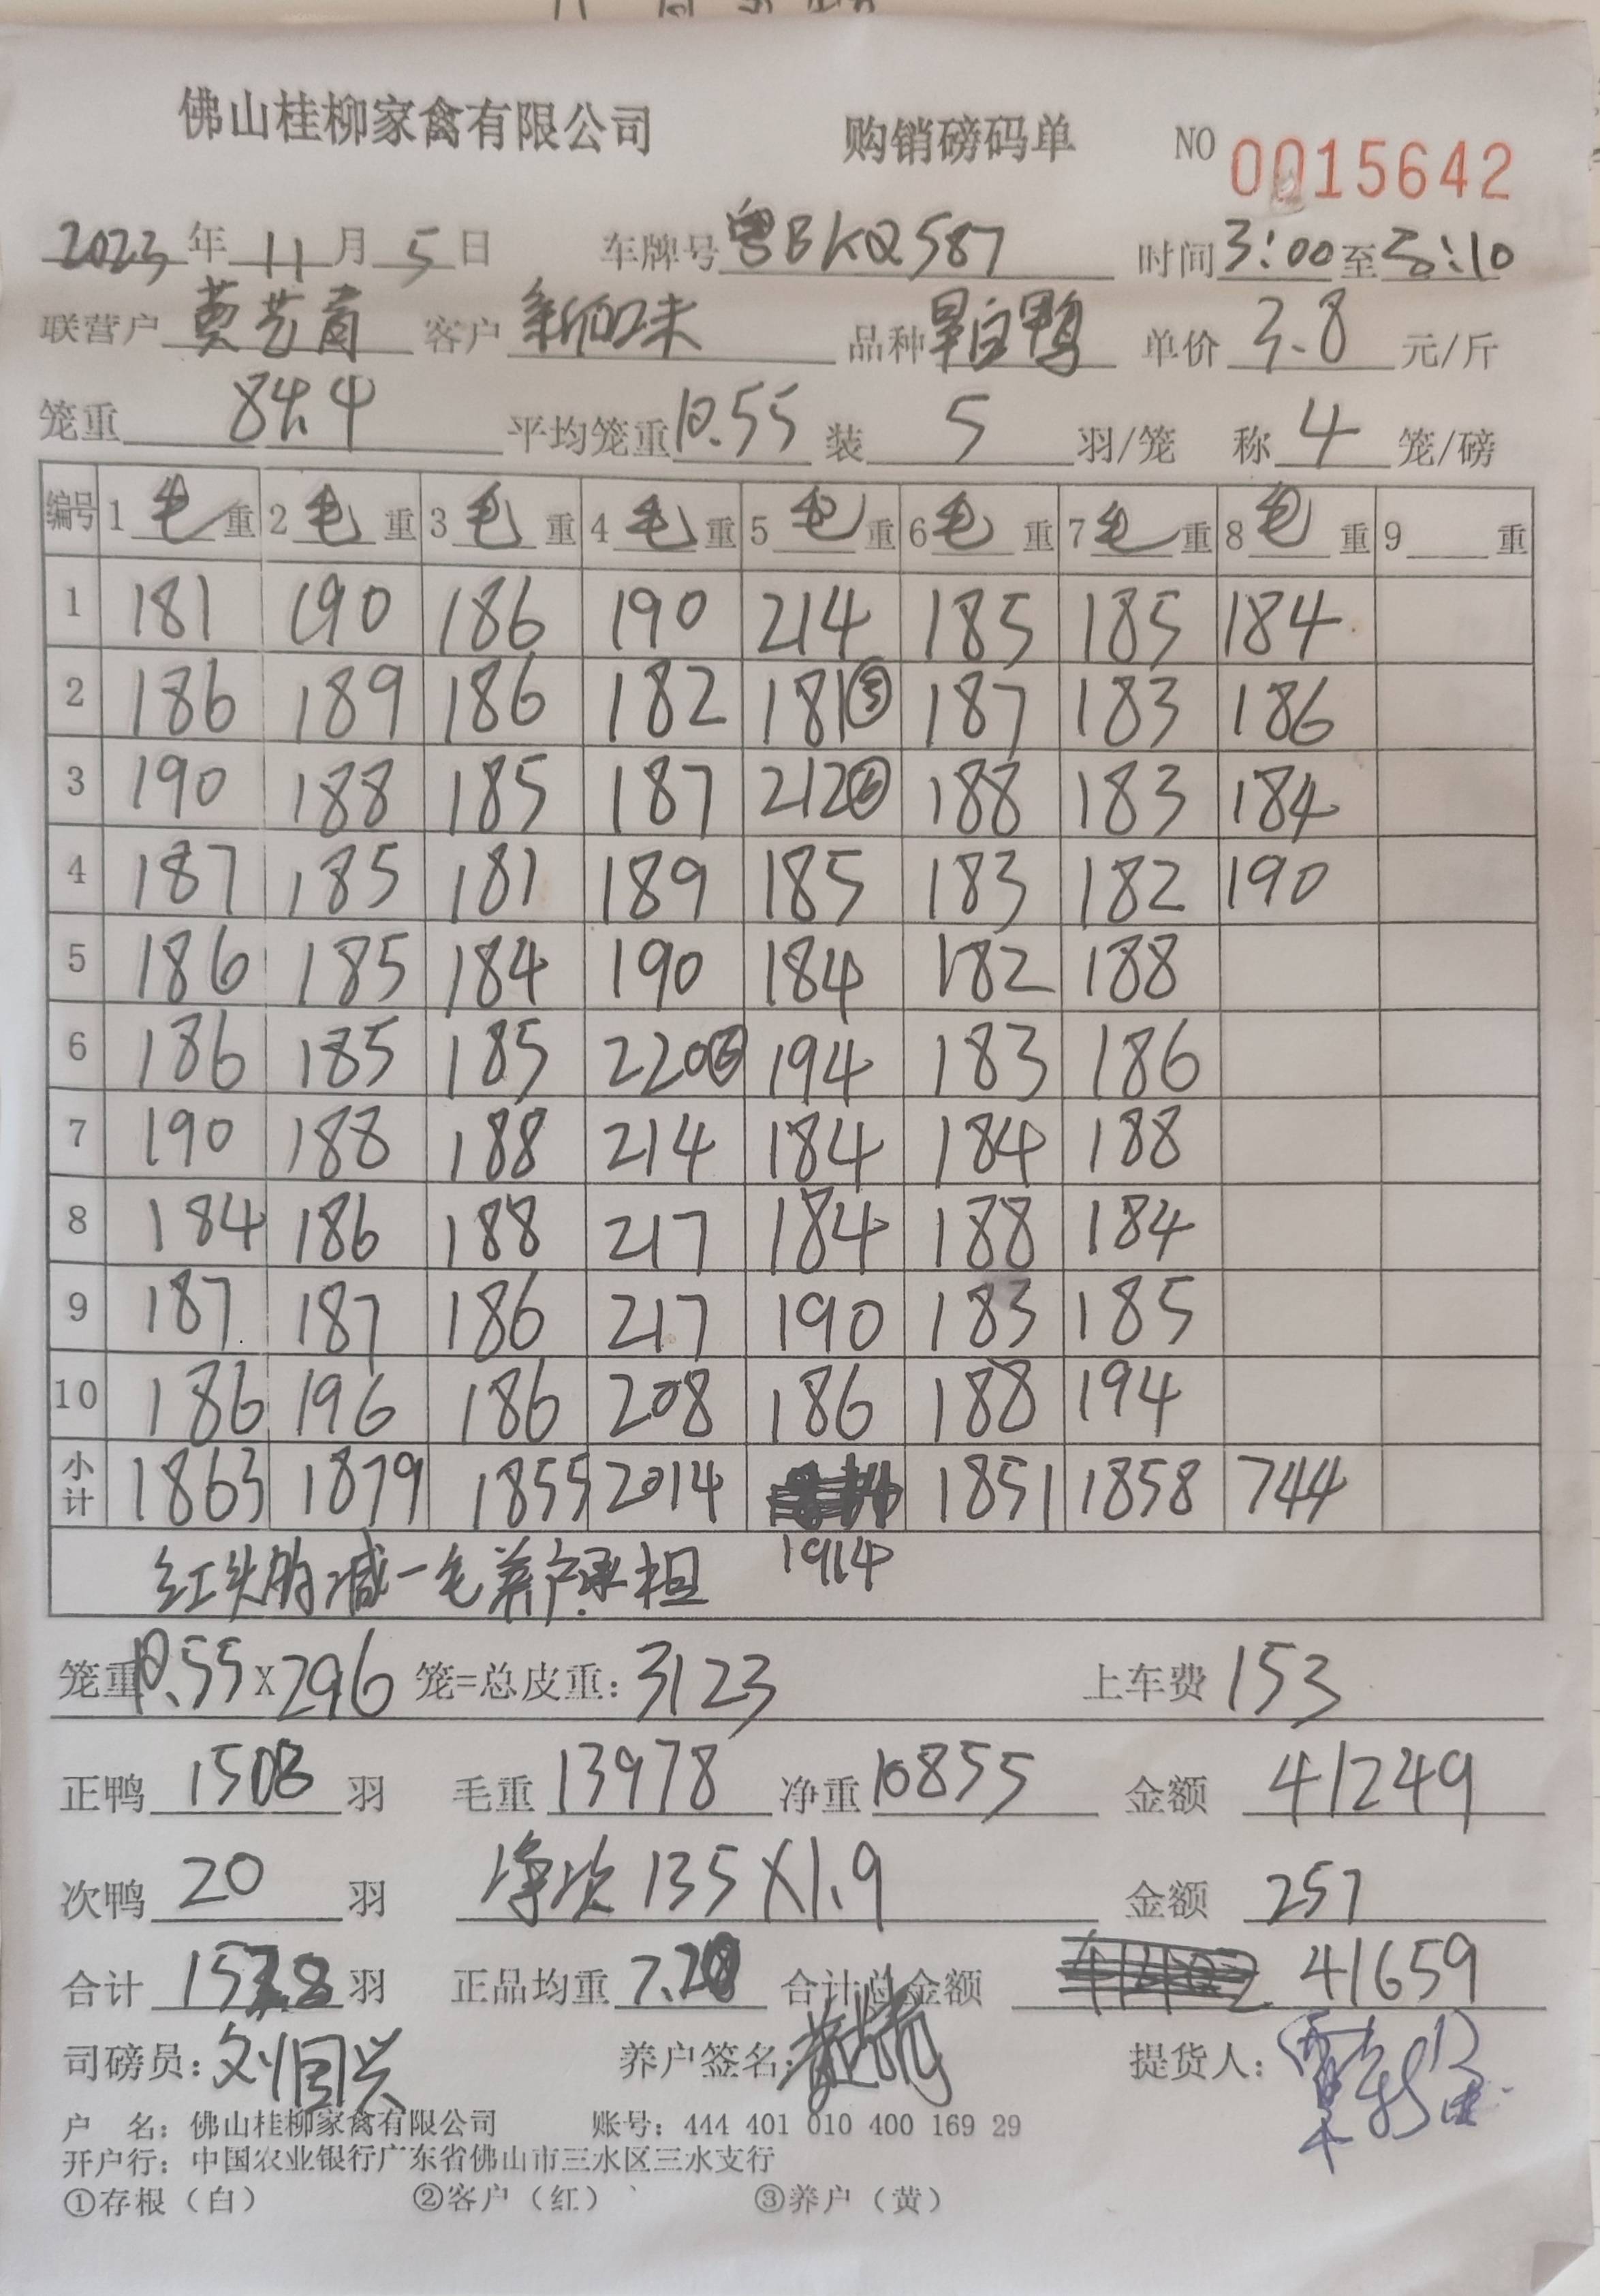 佛山桂柳家禽有限公司 购销磅码单 NO 0015642
2023年11月5日 车牌号 粤BKQ587 时间 3:00至3:10
联营户 客户 新加味 品种 单价 3.8 元/斤
笼重 84.4 平均笼重 10.55 装 5 羽/笼 称 4 笼/磅
编号 1毛重 2毛重 3毛重 4毛重 5毛重 6毛重 7毛重 8毛重 9 重
1 181 190 186 190 214 185 185 184
2 186 189 186 182 181⑤ 187 183 186
3 190 188 185 187 212⑥ 188 183 184
4 187 185 181 189 185 183 182 190
5 186 185 184 190 184 182 188
6 186 185 185 220⑥ 194 183 186
7 190 188 188 214 184 184 188
8 184 186 188 217 184 188 184
9 187 187 186 217 190 183 185
10 186 196 186 208 186 188 194
小计 1863 1879 1855 2014 1851 1858 744
红头的减一毛养户承担 1914
笼重 10.55 X 296 笼=总皮重: 3123 上车费 153
正鸭 1508 羽 毛重 13978 净重 10855 金额 41249
次鸭 20 羽 净次 135X1.9 金额 257
合计 1528 羽 正品均重 7.20 合计总金额 41659
司磅员: 刘国兴 养户签名: 提货人:
户 名: 佛山桂柳家禽有限公司 账号: 444 401 010 400 169 29
开户行: 中国农业银行广东省佛山市三水区三水支行
①存根（白） ②客户（红） ③养户（黄）